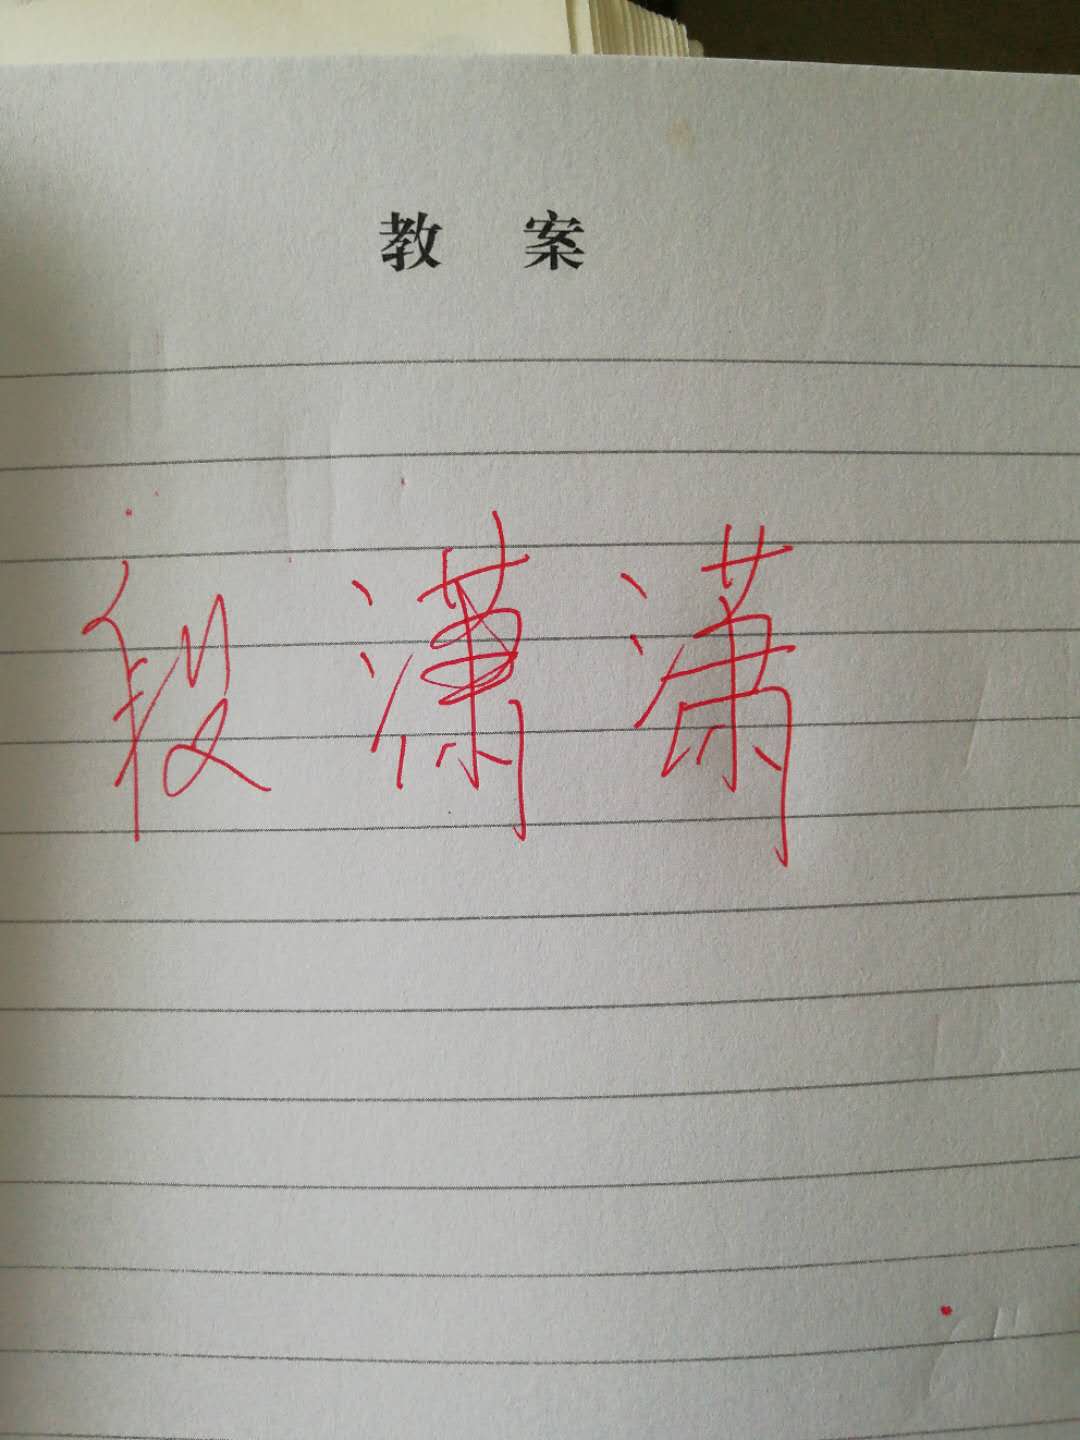 教 案
段潇潇